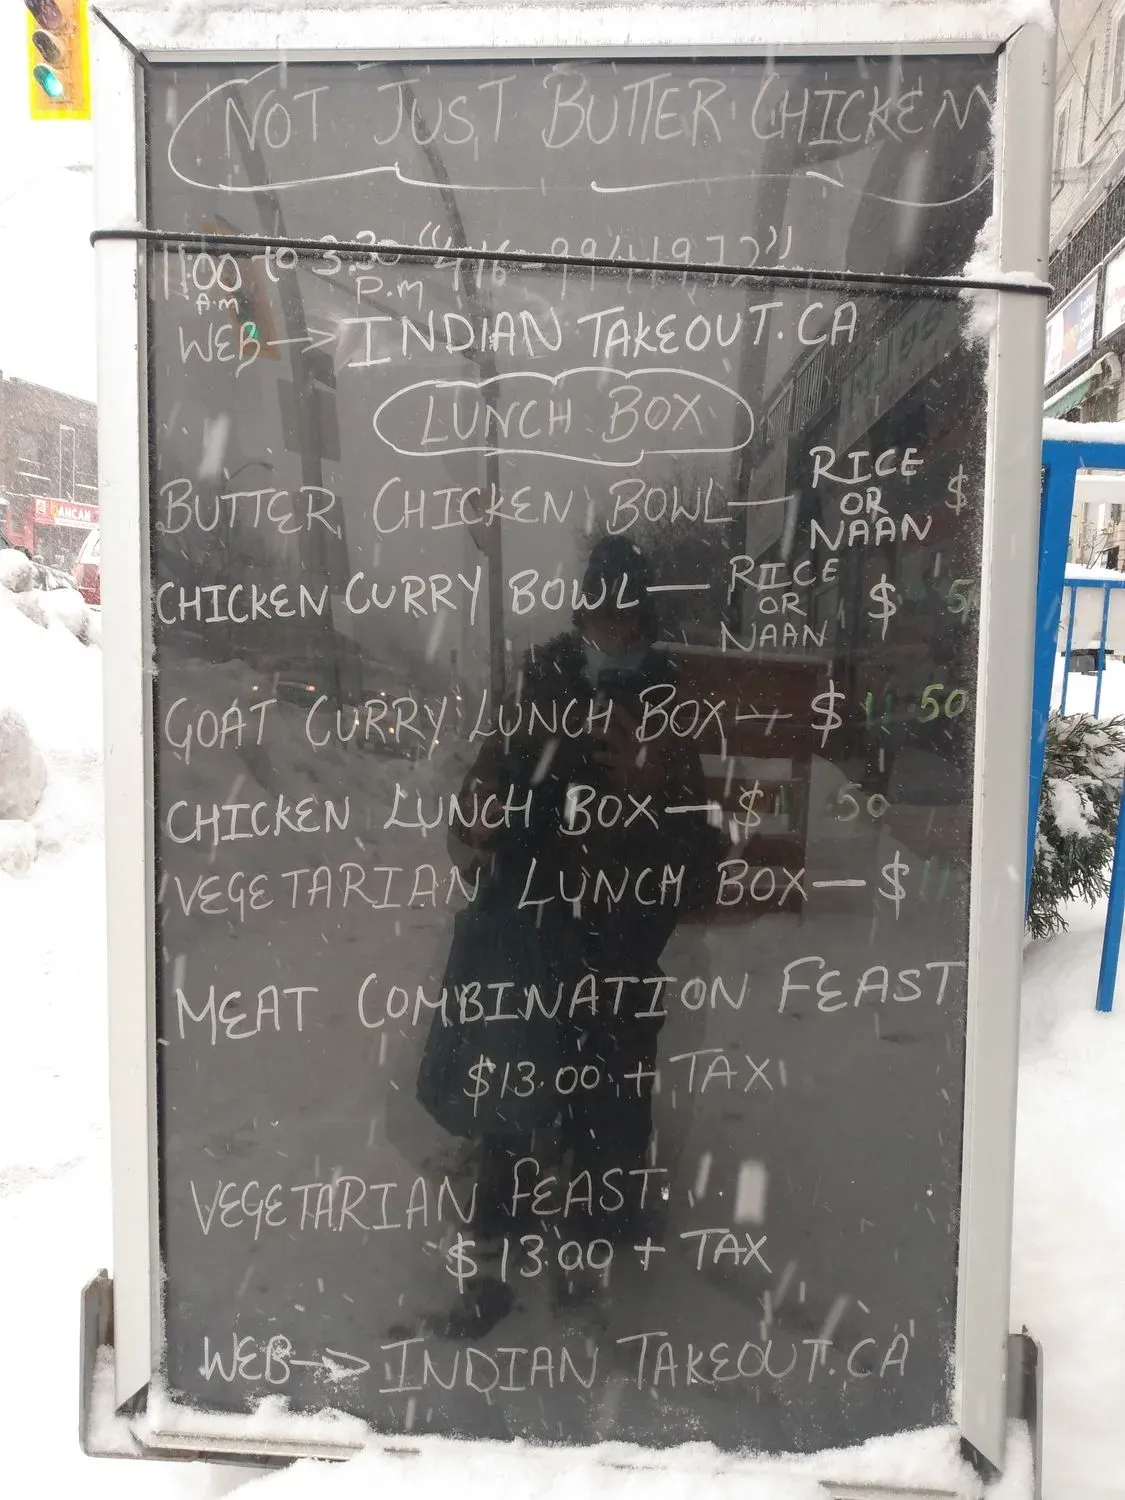 NOT JUST BUTTER CHICKEN
11:00 A.M to 3.30 P.M "416-994-1972"
WEB → INDIAN TAKEOUT.CA
LUNCH BOX
BUTTER CHICKEN BOWL — RICE OR NAAN $
CHICKEN CURRY BOWL — RICE OR NAAN $ 5
GOAT CURRY LUNCH BOX — $ 11 50
CHICKEN LUNCH BOX — $ 50
VEGETARIAN LUNCH BOX — $ 11
MEAT COMBINATION FEAST
$13.00 + TAX
VEGETARIAN FEAST
$13.00 + TAX
WEB → INDIAN TAKEOUT.CA